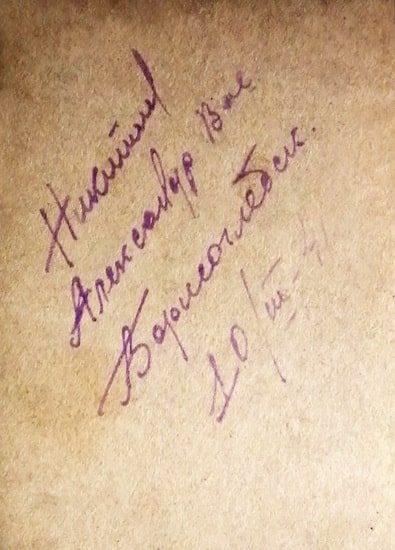 Никитин
Александр Вас
Борисоглебск.
10/III-41